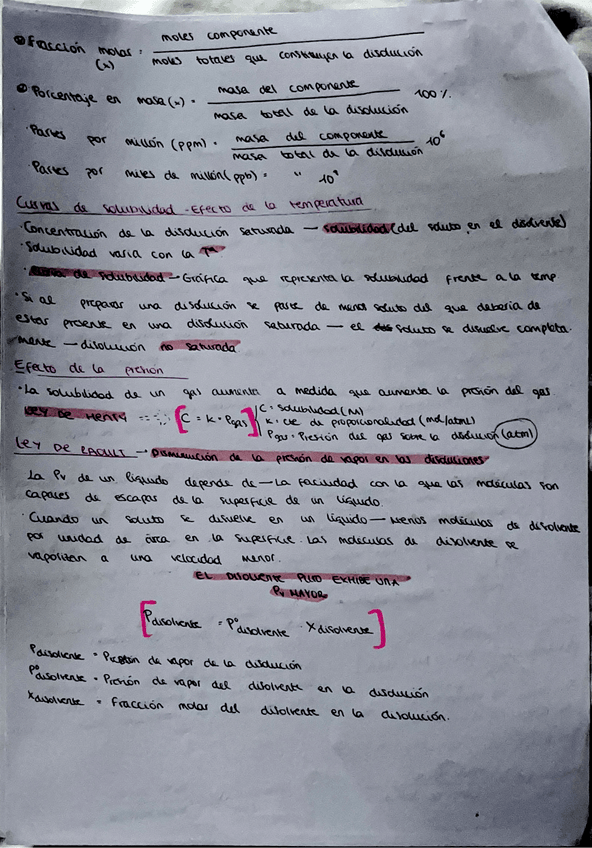 Fracción molar (x) = moles componente / moles totales que constituyen la disolución
Porcentaje en masa (x) = masa del componente / masa total de la disolución 100 %
Partes por millón (ppm) = masa del componente / masa total de la disolución 10⁶
Partes por miles de millón (ppb) = " 10⁹
Curvas de solubilidad - Efecto de la temperatura
· Concentración de la disolución saturada — solubilidad (del soluto en el disolvente)
· Solubilidad varía con la Tª
· Curva de solubilidad — Gráfica que representa la solubilidad frente a la temp
· Si al preparar una disolución se parte de menos soluto del que debería de
estar presente en una disolución saturada — el soluto se disuelve completa-
mente — disolución no saturada.
Efecto de la presión
· La solubilidad de un gas aumenta a medida que aumenta la presión del gas
LEY DE HENRY [C = k · Pgas]
C = solubilidad (M)
k = cte de proporcionalidad (mol/atmL)
Pgas = Presión del gas sobre la disolución (atm)
LEY DE RAOULT — Disminución de la presión de vapor en las disoluciones
La Pv de un líquido depende de — La facilidad con la que las moléculas son
capaces de escapar de la superficie de un líquido.
· Cuando un soluto se disuelve en un líquido — Menos moléculas de disolvente
por unidad de área en la superficie. Las moléculas de disolvente se
vaporizan a una velocidad menor.
EL DISOLVENTE PURO EXHIBE UNA
Pv MAYOR
[Pdisolvente = P°disolvente · Xdisolvente]
Pdisolvente = Presión de vapor de la disolución
P°disolvente = Presión de vapor del disolvente en la disolución
Xdisolvente = Fracción molar del disolvente en la disolución.